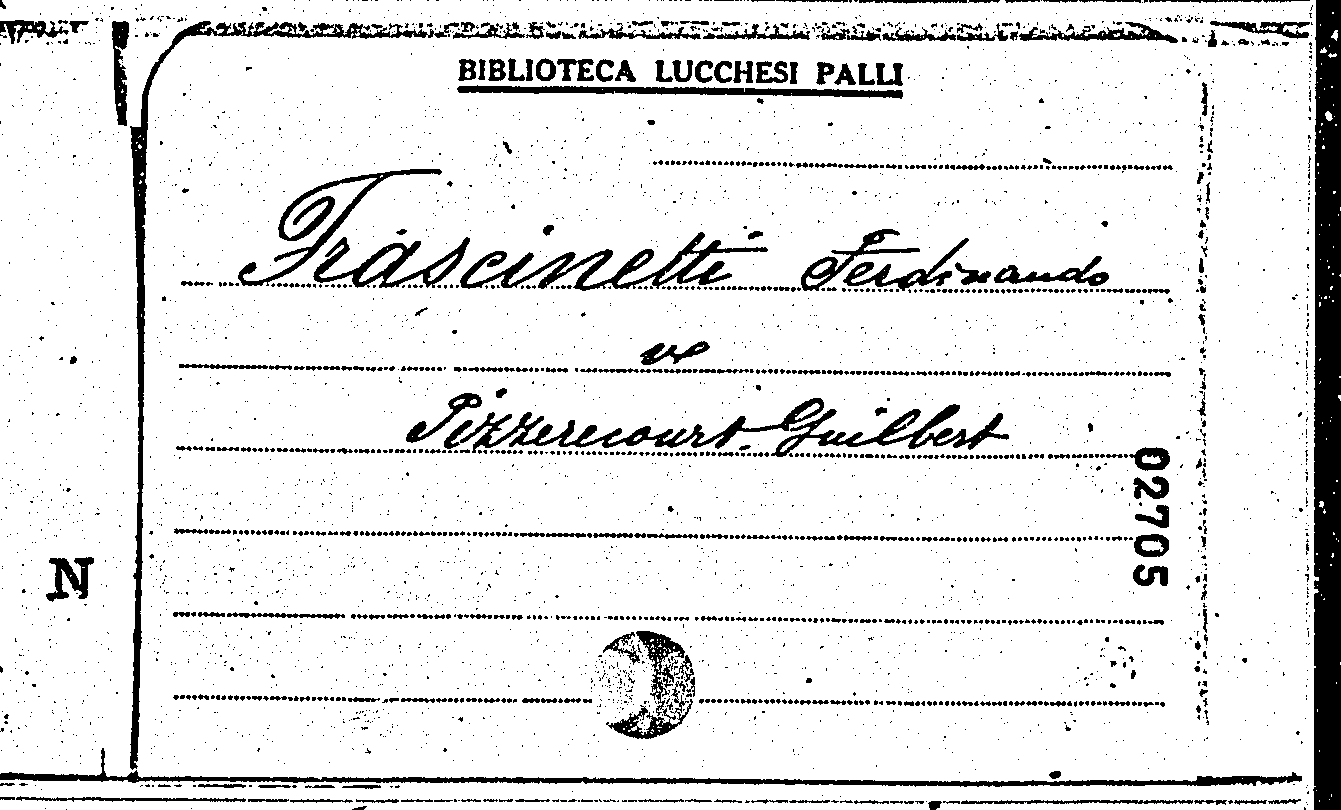 BIBLIOTECA LUCCHESI PALLI
Frascinetti Ferdinando
ve
Pizzerecourt-Guilbert
02705
N